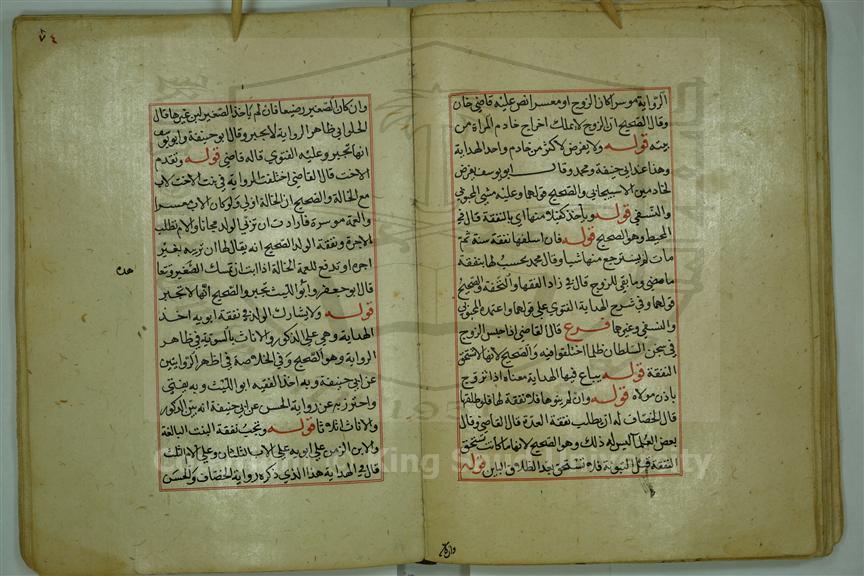 الرواية موسرا كان الزوج او معسرا نص عليه قاضي خان
وقال الصحيح ان الزوج لا يملك اخراج خادم المرأة من
بيته قوله ولا يفرض لاكثر من خادم واحد الهداية
وهذا عند ابي حنيفة ومحمد وقال ابو يوسف يفرض
لخادمين الاسبيجابي والصحيح قولهما وعليه مشي المحبوبي
والنسفي قوله ويأخذ كفيلا منها اي بالنفقة قال في
المحيط وهو الصحيح قوله فان اسلفها نفقة سنة ثم
مات لم يسترجع منها شيأ وقال محمد يحسب لها بنفقة
ما مضى وما بقي للزوج قال في زاد الفقها والتحفة والصحيح
قولهما وفي شرح الهداية الفتوي علي قولهما واعتمده المحبوبي
والنسفي وغيرهما فرع قال القاضي اذا حبس الزوج
في سجن السلطان ظلما اختلفوا فيه والصحيح انها لا تستحق
النفقة قوله يباع فيها الهداية معناه اذا تزوج
باذن مولاه قوله وان لم ينوها فلا نفقة لها فلو طلقها
قال الخصاف له ان يطلب نفقة العدة قال القاضي وقال
بعض العلماء ليس له ذلك وهو الصحيح لانها ما كانت تستحق
النفقة قبل البينونة فلا تستحق بعد الطلاق البائن قوله
وان كان الصغير رضيعا فان لم يأخذ الصغير لبن غيرها قال
الحلواني ظاهر الرواية لا يجبر وقال ابو حنيفة وابو يوسف
انها تجبر وعليه الفتوي قاله قاضي قوله وتقدم
الاخت قال القاضي اختلفت الرواية في بنت الاخت لاب
مع الخالة والصحيح ان الخالة اولي ولو كان الاب معسرا
والعمة موسرة فارادت ان تربي الولد مجانا والام تطلب
الاجرة ونفقة الولد الصحيح انه يقال لها ان تربيه بغير
اجرة او تدفع للعمة الخالة اذا ابت ان تمسك الصغير وتعا
قال ابو جعفر وابو الليث تجبر والصحيح انها لا تجبر
قوله ولا يشارك الولد في نفقة ابويه احد
الهداية وهي علي الذكور والاناث بالسوية في ظاهر
الرواية وهو الصحيح وفي الخلاصة في اظهر الروايتين
عن ابي حنيفة وبه اخذ الفقيه ابو الليث وبه يفتي
واحترز به عن رواية الحسن عن ابي حنيفة انه بين الذكور
والاناث اثلاثا قوله وتجب نفقة البنت البالغة
والابن الزمن علي ابويه علي الاب الثلثان وعلي الام الثلث
قال في الهداية هذا الذي ذكره رواية الخصاف والحسن
© King Saud University